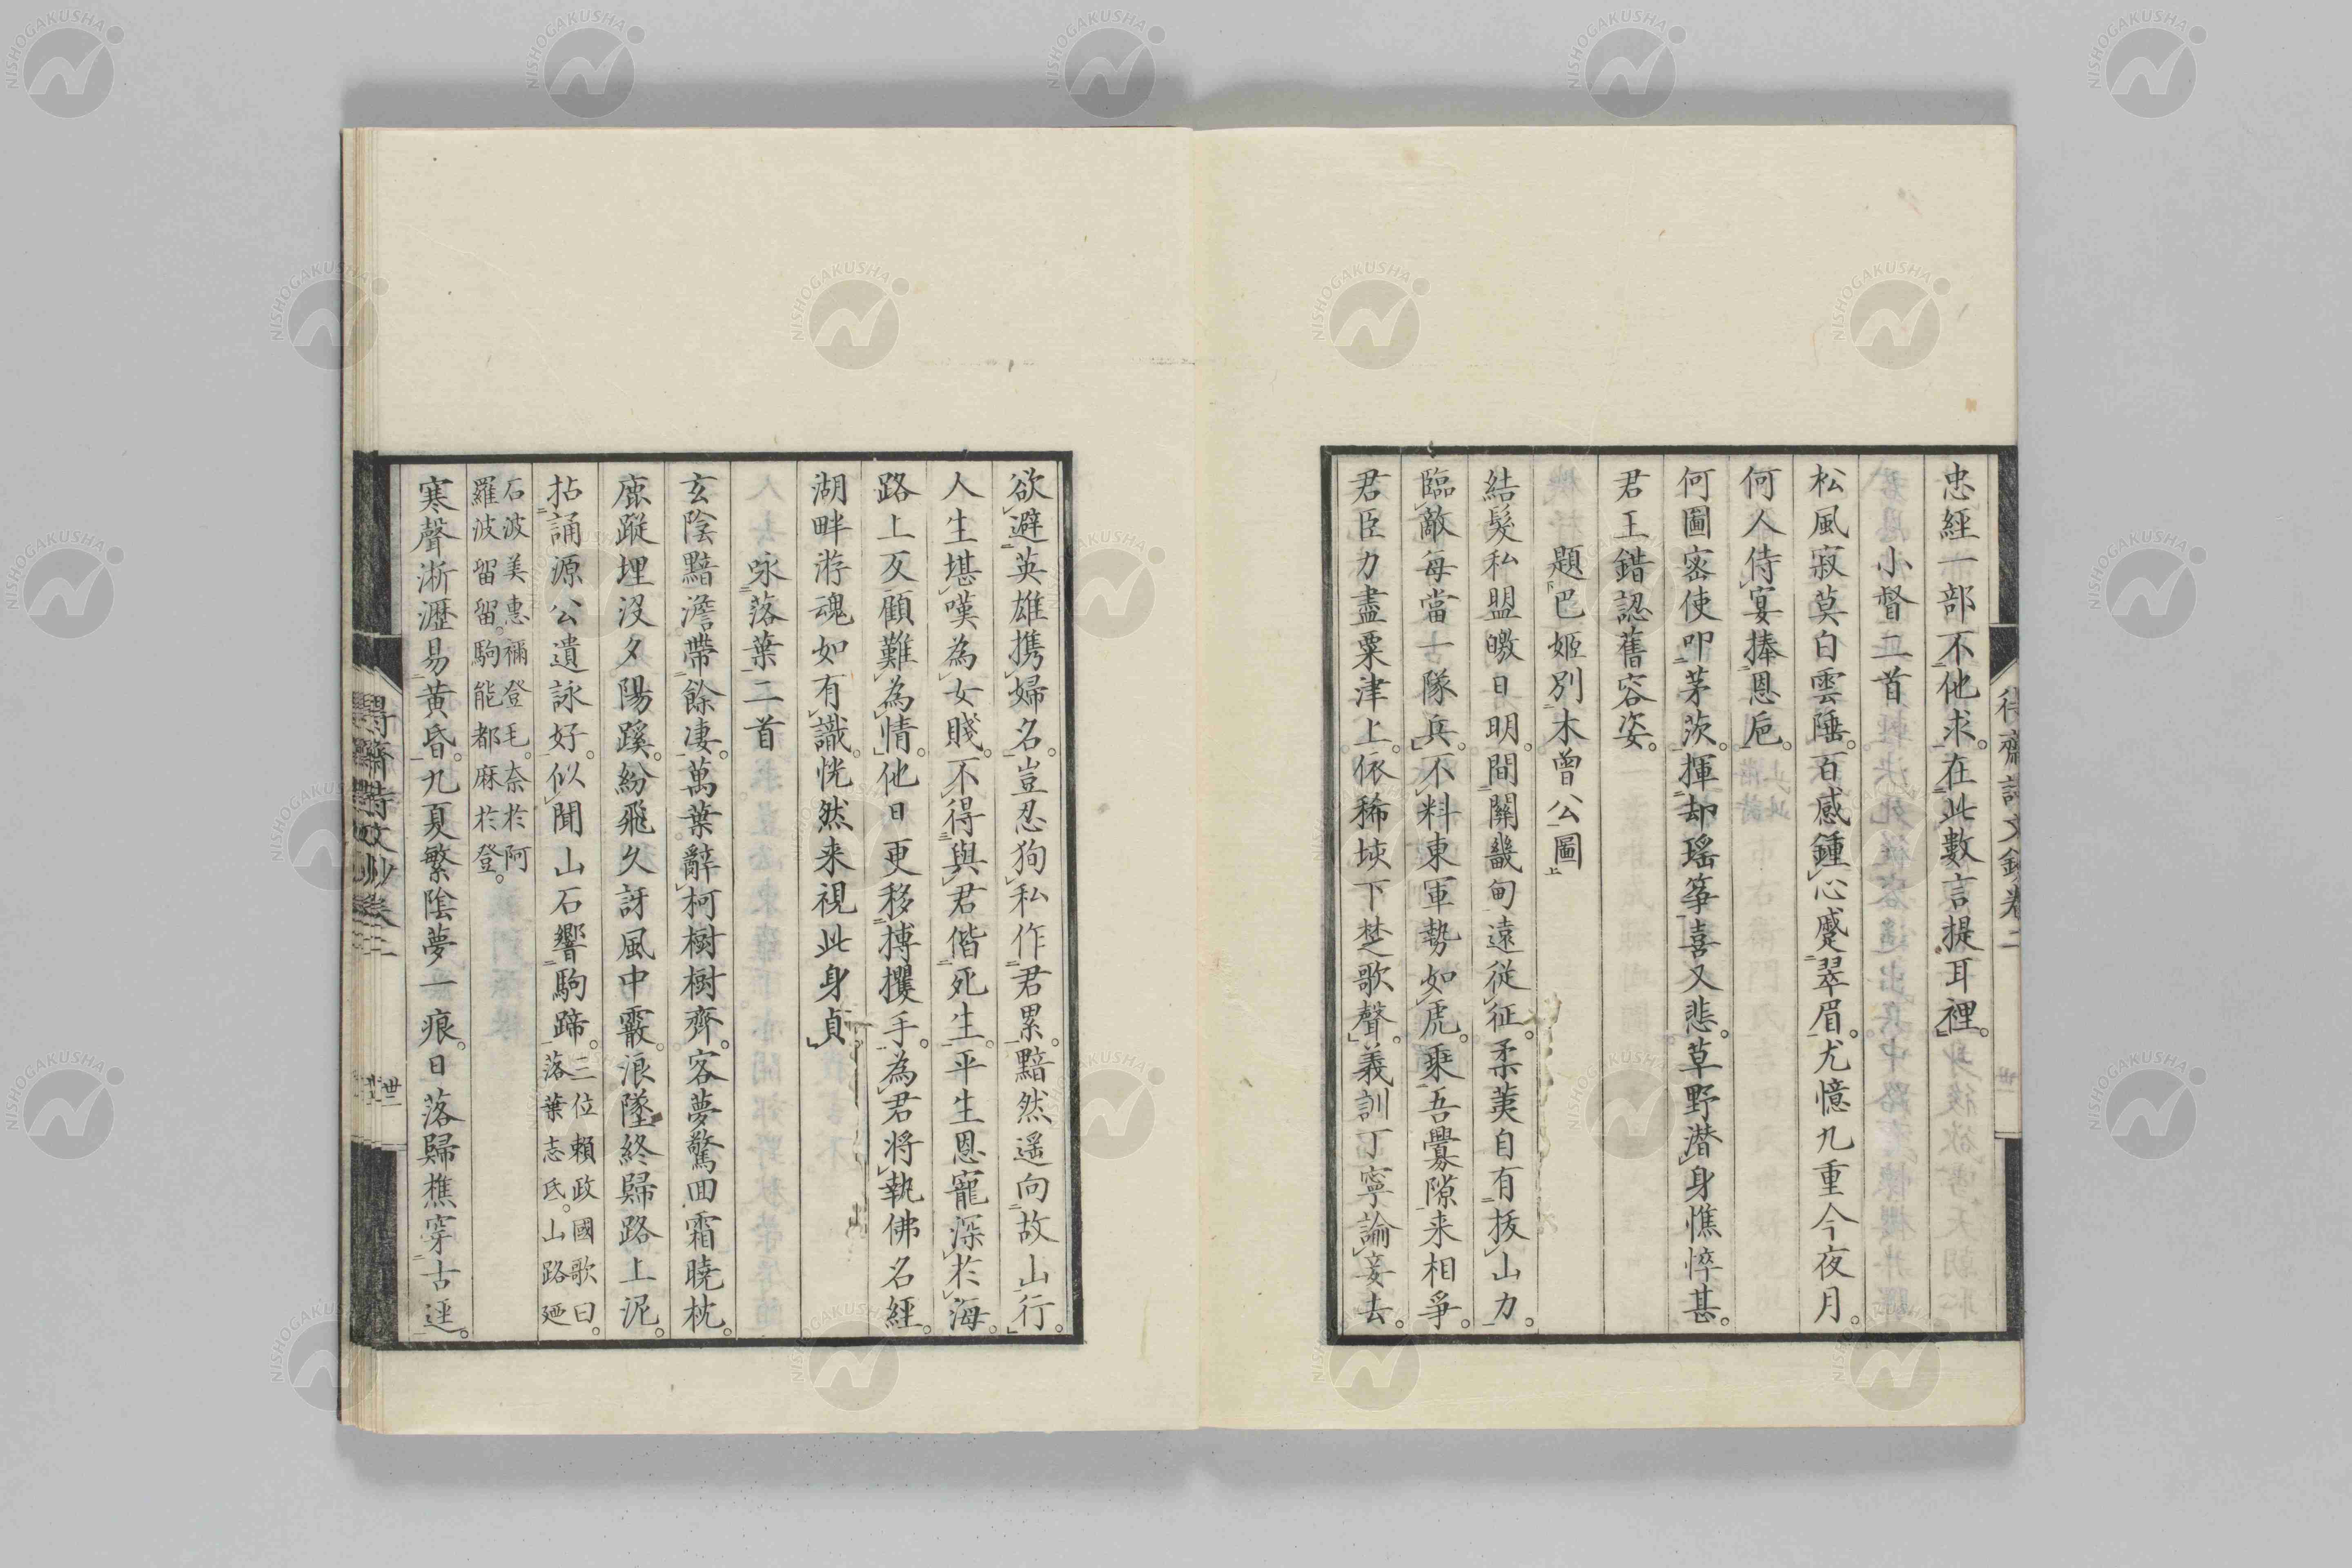 忠經一部不他求。在此數言提耳裡。
小督二首
松風寂莫白雲陲。百感鍾心蹙翠眉。尤憶九重今夜月。
何人侍宴捧恩巵。
何圖密使叩茅茨。揮却瑤箏喜又悲。草野潜身憔悴甚。
君王錯認舊容姿。
題巴姬別木曾公圖
結髮私盟皦日明。間關畿甸遠從征。柔荑自有拔山力。
臨敵每當一隊兵。不料東軍勢如虎。乘吾釁隙来相爭。
君臣力盡粟津上。依稀垓下楚歌聲。義訓丁寧論妾去。
欲避英雄携婦名。豈忍狥私作君累。黯然遥向故山行。
人生堪嘆為女賤。不得與君偕死生。平生恩寵深於海。
路上反顧難為情。他日更移搏攫手。為君将執佛名經。
湖畔游魂如有識。恍然来視此身貞。
咏落葉二首
玄陰黯澹帶餘凄。萬葉辭柯樹樹齊。客夢驚回霜曉枕。
鹿蹤埋沒夕陽蹊。紛飛久訝風中霰。浪墜終歸路上泥。
拈誦源公遺詠好。似聞山石響駒蹄。三位賴政國歌曰。落葉志氐。山路廼
石波美惠禰登毛。奈於阿羅波留留。駒能都麻於登。
寒聲淅瀝易黃昏。九夏繁陰夢一痕。日落歸樵穿古逕。